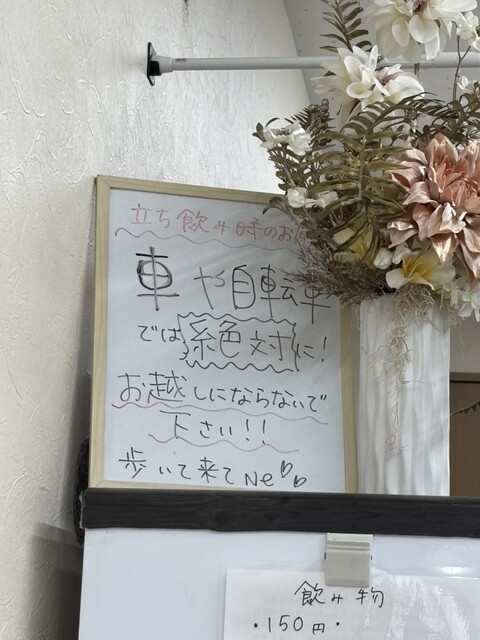 立ち飲み時のお
車や自転車
では絶対に!
お越しにならないで
下さい!!
歩いて来てNe♡♡
飲み物
・150円・